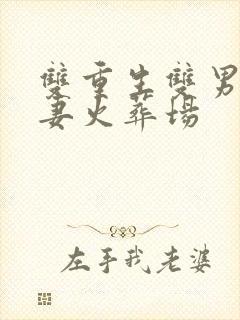 雙重生雙男
妻火葬場
左手我老婆